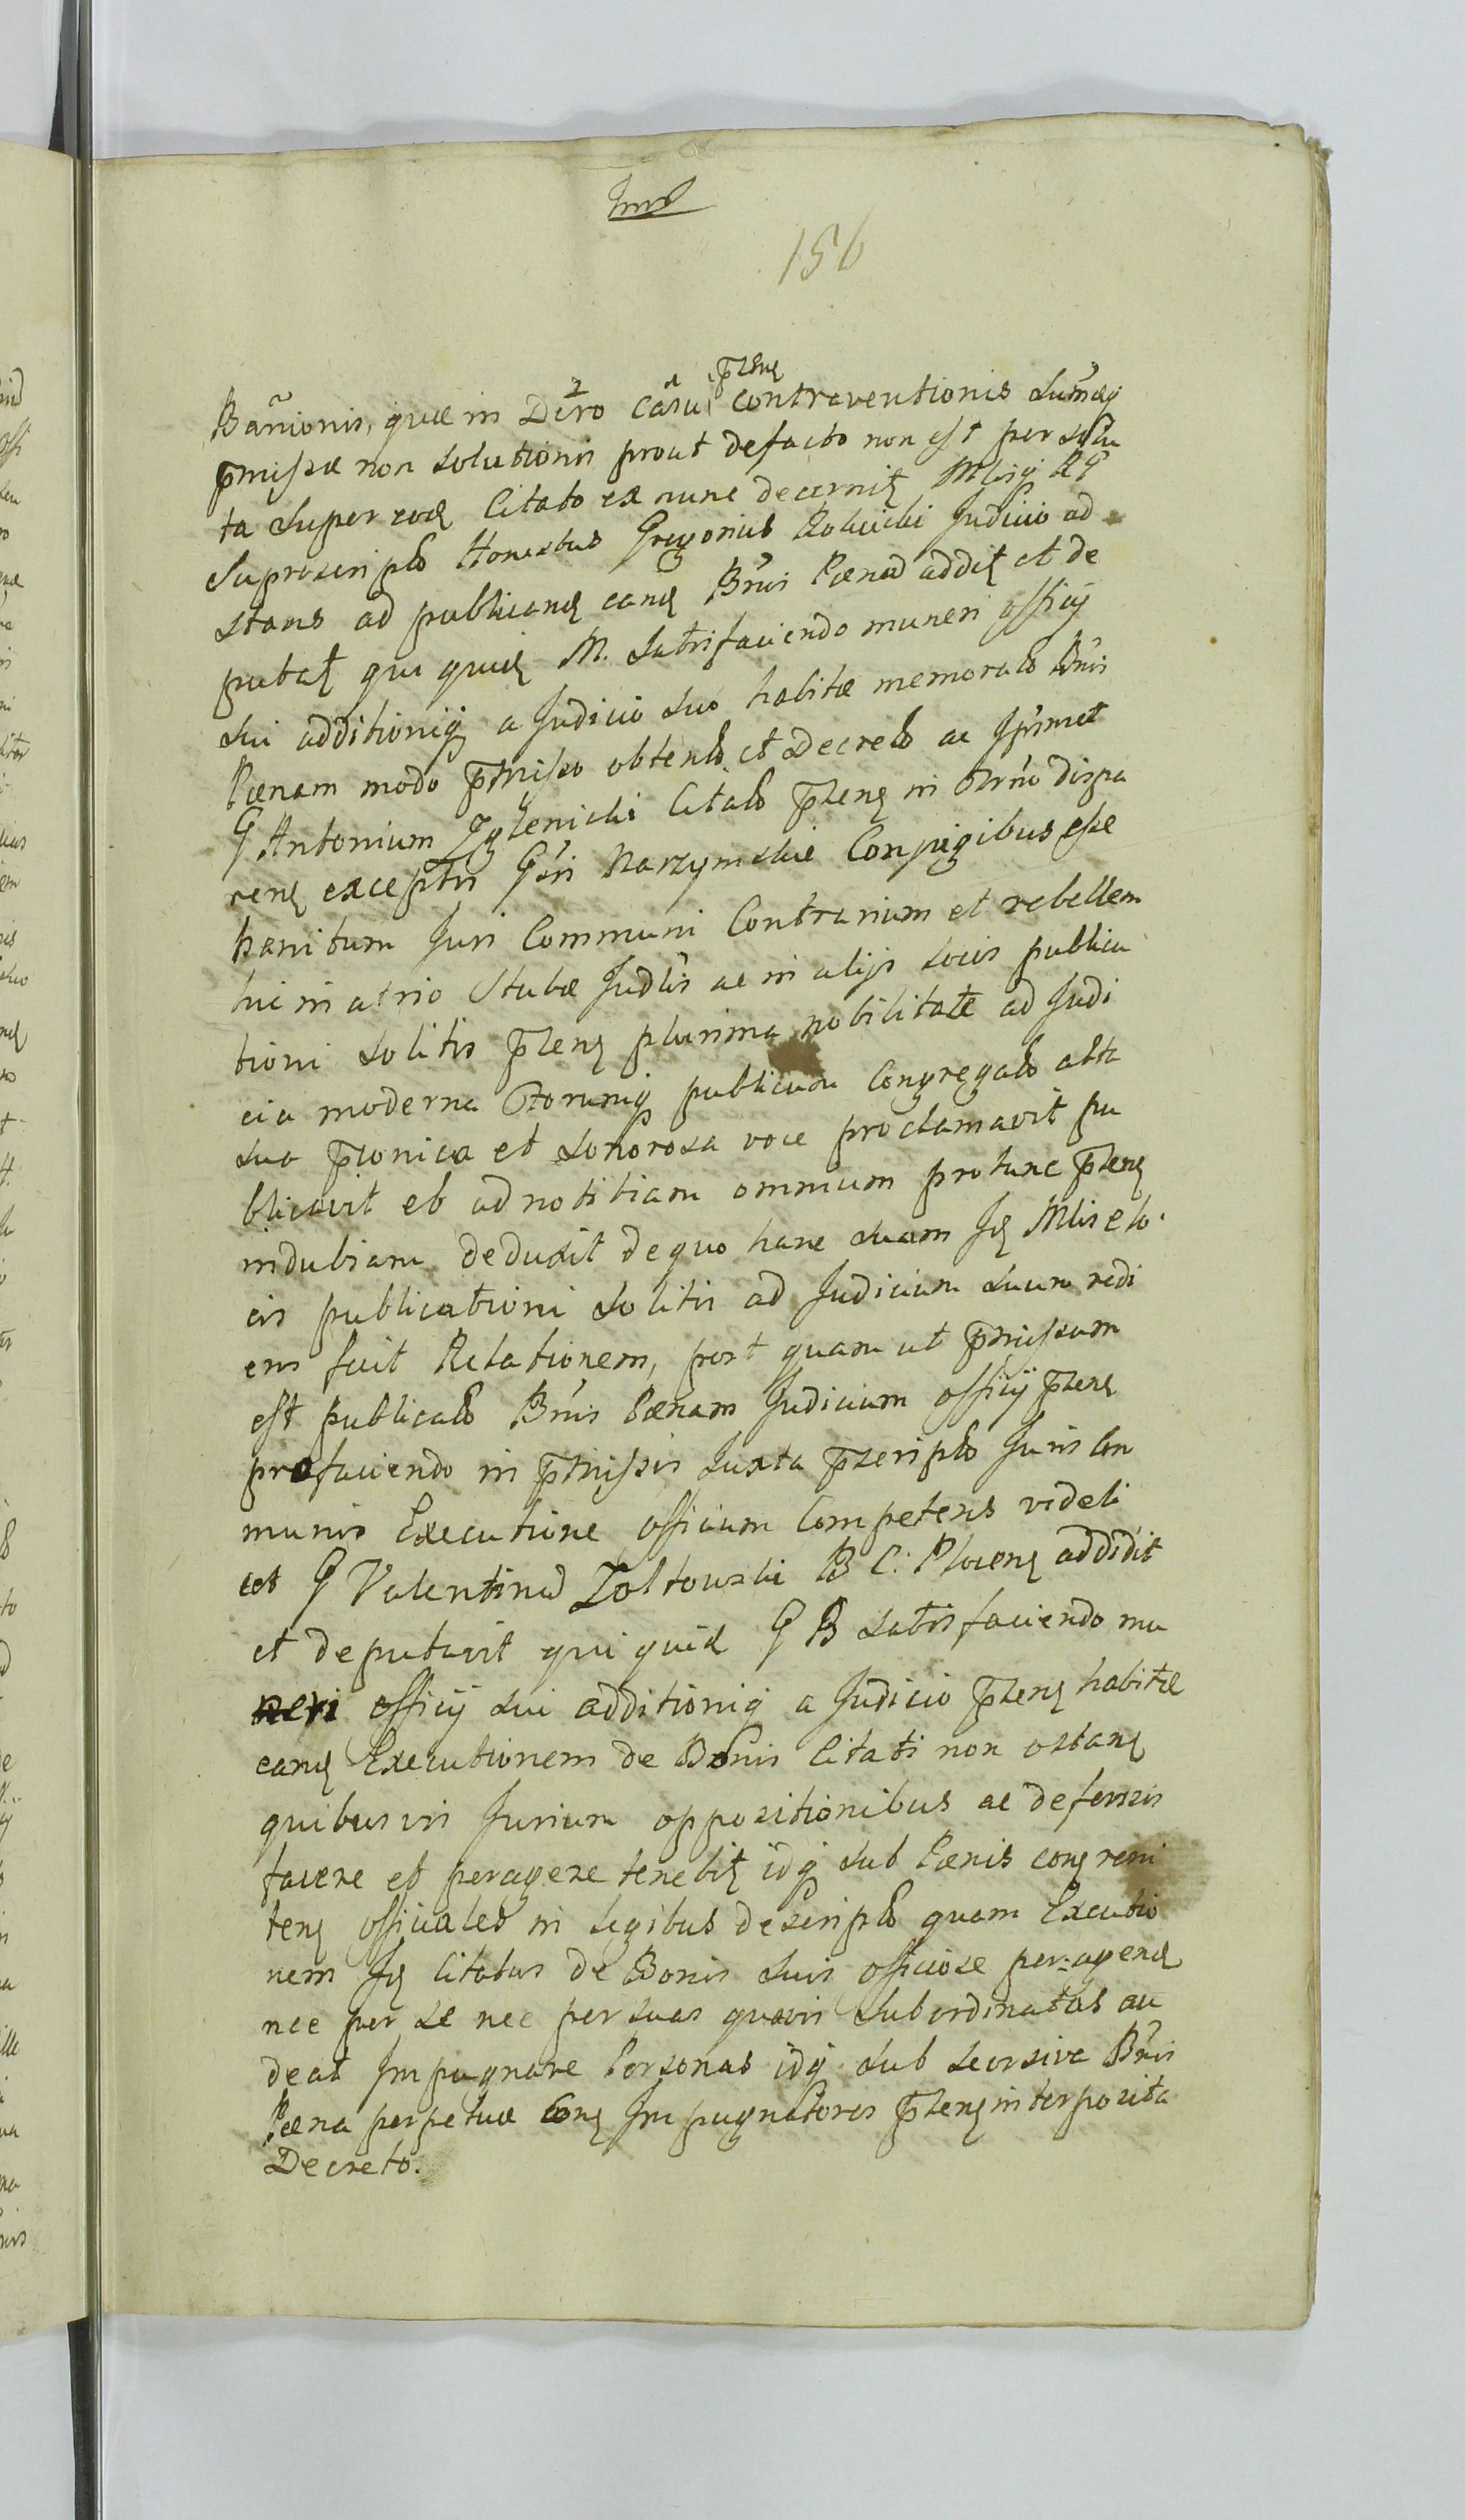 156
Bañionis, quæ in Dcṫro Casu p̄tenę contraventionis Sumæq
p̄missæ non solutionis prout defacto non est persolu
ta super eodę Citato ex nunc decernitę Mlisq RG
Suprascripto Honestus Gregorius Judicio ad
stans ad publicandę eandę Bnis Pœnā additę et de
putatę qui quidę M. Satisfaciendo muneri officij
sui additioniq a Judicio suo habitæ memorato Bnis
Pœnam modo p̄misso obtento et Decreto ac Ipsmet
G Antonium Zglenicki Citato p̄tenę in Trno dispa
renę exceptis Gsis Narzymskie Conjugibus esse
banitum Juri Communi Contrarium et rebellem
hic in atrio Stubæ Judlis ac in alijs locis publica
tioni solitis p̄tenę plurima nobilitate ad Judi
cia moderna publicam Congregato alta
sua p̄conica et sonorosa voce proclamavit pu
blicavit et ad notitiam omnium protunc p̄tenę
indubiam deduxit de quo hanc suam Ję Mlis e lo
cis publicationi solitis ad Judicium suum redi
ens fecit Relationem, post quam ut p̄missum
est publicato Bnis Pœnam Judicium officij p̄tenę
profaciendo in p̄missis Juxta p̄scripto Juris Com
munis Executione officium Competens videli
cet G Valentinū Zoltowski B C: Plocenę addidit
et deputavit qui quid G B satisfaciendo mu
neri officij sui additioniq a Judicio p̄tenę habitæ
eandę Executionem de Bonis Citati non ostanę
quibusvis Jurium oppositionibus ac defensis
facere et peragere tenebitę idq sub Pœnis conę reni
tenę officiales in legibus descripto quam Executio
nem Ję Citatus de Bonis suis officiose per-agendę
nec per se nec per suas quasvis subordinatas au
deat Impugnare Personas idq sub seorsiva Bnis
Pœna perpetuæ Conę Impugnatores p̄tenę interposita
Decreto.